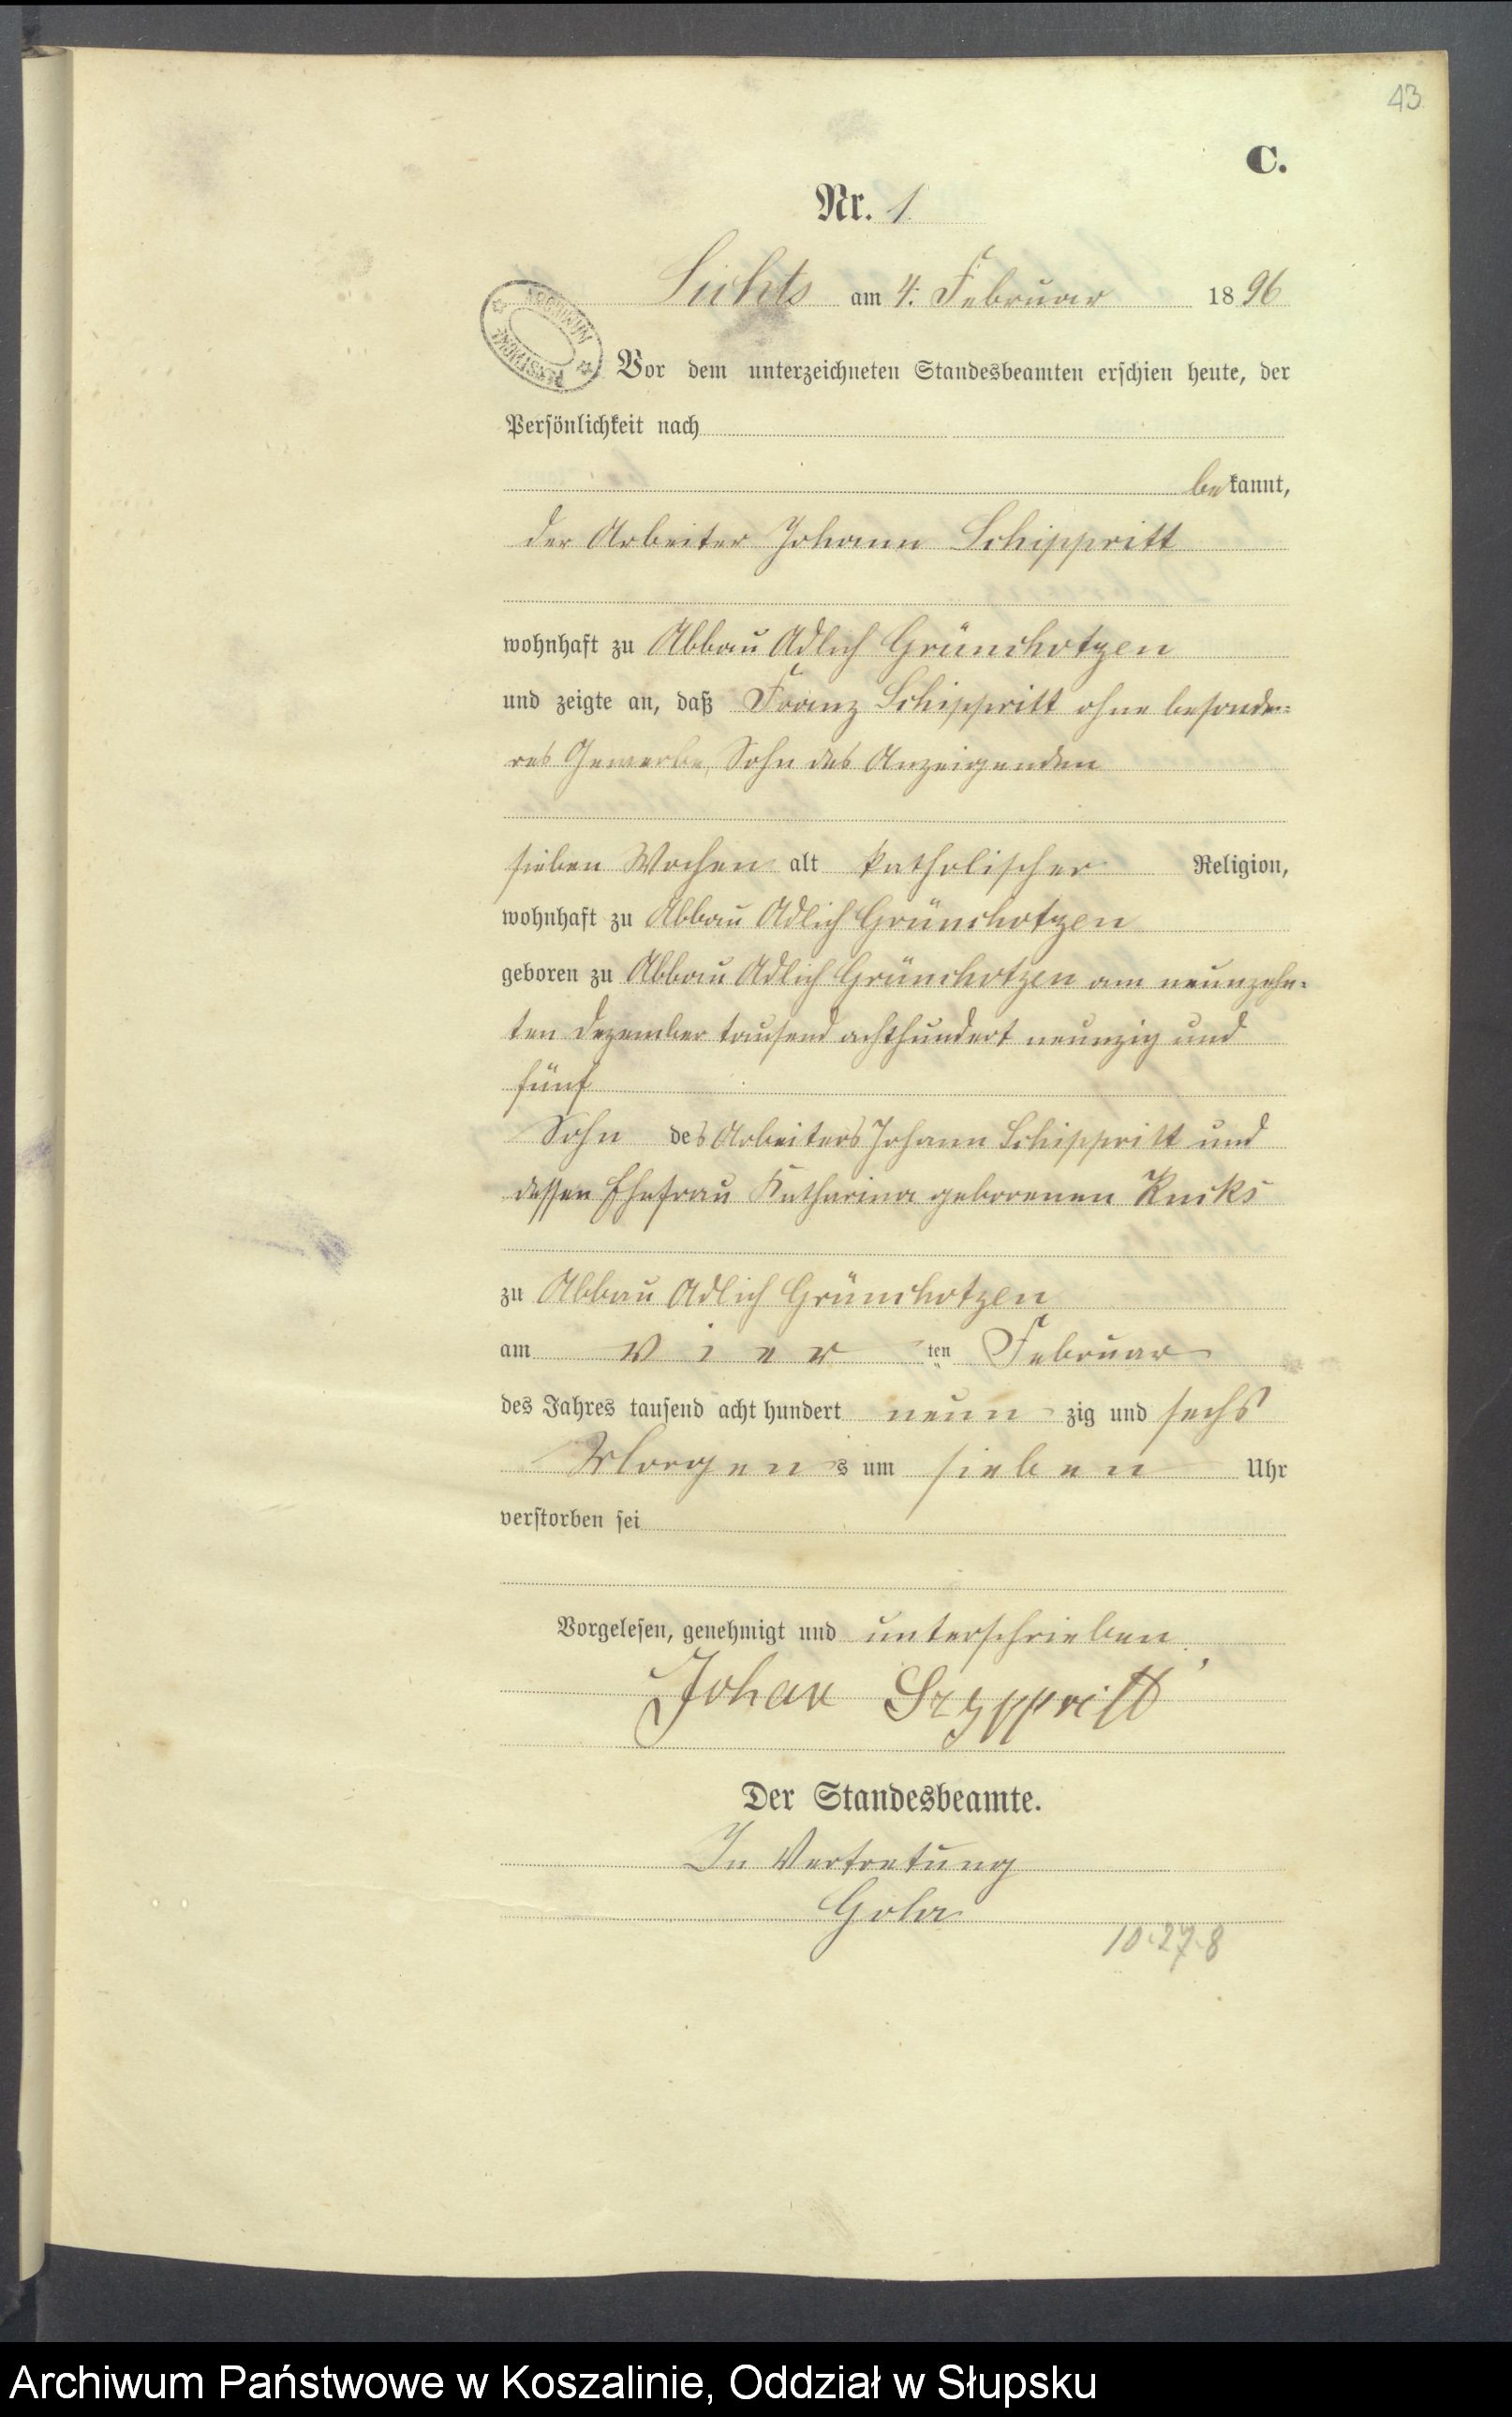 43
C.
Nr. 1
Lichts am 4. Februar 1896
ARCHIWUM PAŃSTWOWE
Vor dem unterzeichneten Standesbeamten erschien heute, der
Persönlichkeit nach
bekannt,
der Arbeiter Johann Schippritt
wohnhaft zu Abbau Adlich Grünchotzen
und zeigte an, daß Franz Schippritt ohne besonde-
res Gewerbe, Sohn des Anzeigenden
sieben Wochen alt katholischer Religion,
wohnhaft zu Abbau Adlich Grünchotzen
geboren zu Abbau Adlich Grünchotzen am neunzehn-
ten Dezember tausend achthundert neunzig und
fünf
Sohn des Arbeiters Johann Schippritt und
dessen Ehefrau Katharina geborenen
zu Abbau Adlich Grünchotzen
am vier ten Februar
des Jahres tausend acht hundert neun zig und sechs
Morgens um sieben Uhr
verstorben sei
Vorgelesen, genehmigt und unterschrieben
Johan Szyppritt
Der Standesbeamte.
In Vertretung
10.27.8
Archiwum Państwowe w Koszalinie, Oddział w Słupsku